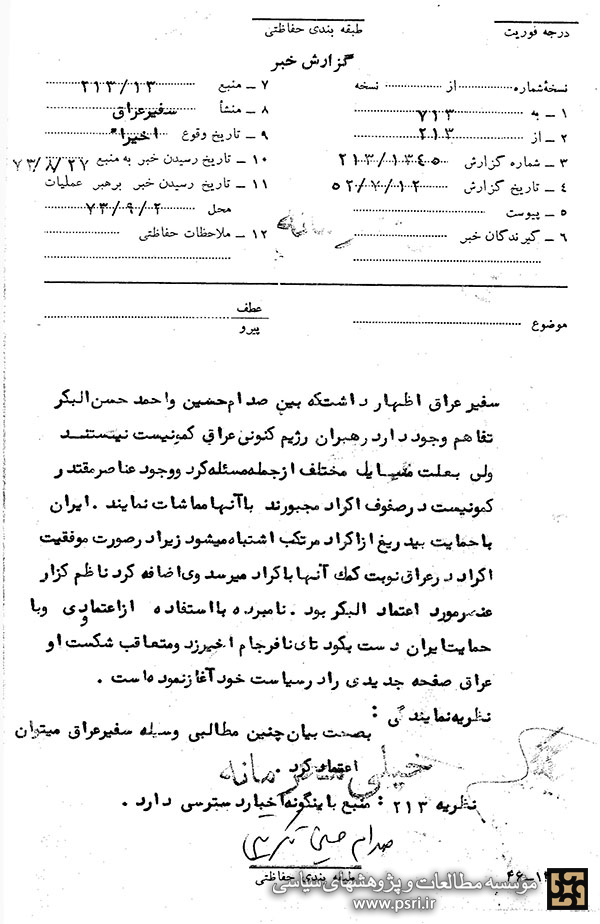 طبقه بندی حفاظتی
درجه فوریت
گزارش خبر
نسخهٔ شماره ................ از ................ نسخه
۱ ــ به ۷۱۳
۲ ــ از ۲۱۳
۳ ــ شماره گزارش ۲۱۳/۱۳۴۵
۴ ــ تاریخ گزارش ۵۲/۷/۱۲
۵ ــ پیوست
۶ ــ گیرندگان خبر
۷ ــ منبع ۲۱۳/۱۳
۸ ــ منشأ سفیر عراق
۹ ــ تاریخ وقوع اخیراً
۱۰ ــ تاریخ رسیدن خبر به منبع ۷۳/۸/۲۷
۱۱ ــ تاریخ رسیدن خبر برهبر عملیات
محل ۷۳/۹/۲
۱۲ ــ ملاحظات حفاظتی
موضوع
عطف
پیرو
سفیر عراق اظهار داشت که بین صدام حسین و احمد حسن البکر
تفاهم وجود دارد رهبران رژیم کنونی عراق کمونیست نیستند
ولی بعلت مسایل مختلف از جمله مسئله کرد و وجود عناصر مقتدر
کمونیست در صفوف اکراد مجبورند با آنها مماشات نمایند . ایران
با حمایت بیدریغ از اکراد مرتکب اشتباه میشود زیرا در صورت موفقیت
اکراد در عراق نوبت کمک آنها با کراد میرسد وی اضافه کرد ناظم کزار
عنصر مورد اعتماد البکر بود . نامبرده با استفاده از اعتماد وی و با
حمایت ایران دست بکودتای نافرجام اخیر زد و متعاقب شکست او
عراق صفحه جدیدی را در سیاست خود آغاز نموده است .
نظریه نمایندگی :
بصحت بیان چنین مطالبی وسیله سفیر عراق میتوان
اعتماد کرد .
خیلی محرمانه
نظریه ۲۱۳ : منبع باینگونه اخبار دسترسی دارد .
صدام حسین تکریتی
طبقه بندی حفاظتی
۴۶-۱۴
موسسه مطالعات و پژوهشهای سیاسی
www.psri.ir